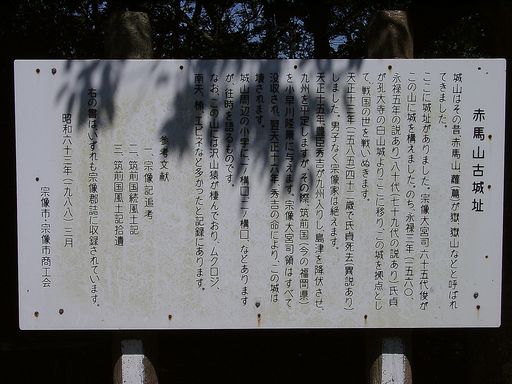 赤馬山古城址
城山はその昔、赤馬山、蘿(蔦)が嶽、嶽山などと呼ばれ
てきました。
ここに城址がありました。宗像大宮司六十五代俊が
この山に城を構えました。のち、永禄三年(一五六〇、
永禄五年の説あり)八十代(七十九代の説あり)氏貞
が孔大寺の白山城よりここに移り、この城を拠点とし
て、戦国の世を戦いぬきます。
天正十三年(一五八五)四十二歳で氏貞死去(異説あり)
しました。男子なく宗像家は絶えます。
天正十五年、豊臣秀吉が九州入りし、島津を降伏させ、
九州を平定しますが、その際、筑前国(今の福岡県)
を小早川隆景に与えます。宗像大宮司領はすべて
没収され、翌天正十六年、秀吉の命により、この城は
壊されます。
城山周辺の小字に「一ノ構口」「二ノ構口」などあります
が往時を語るものです。
なお、この山には沢山猿が棲んでおり、ムクロジ、
南天、椿、エビネなど多かったと記録にあります。
参考文献
一、宗像記追考
二、筑前国続風土記
三、筑前国風土記拾遺
右の書は、いずれも宗像郡誌に収録されています。
昭和六十三年(一九八八)三月
宗像市・宗像市商工会